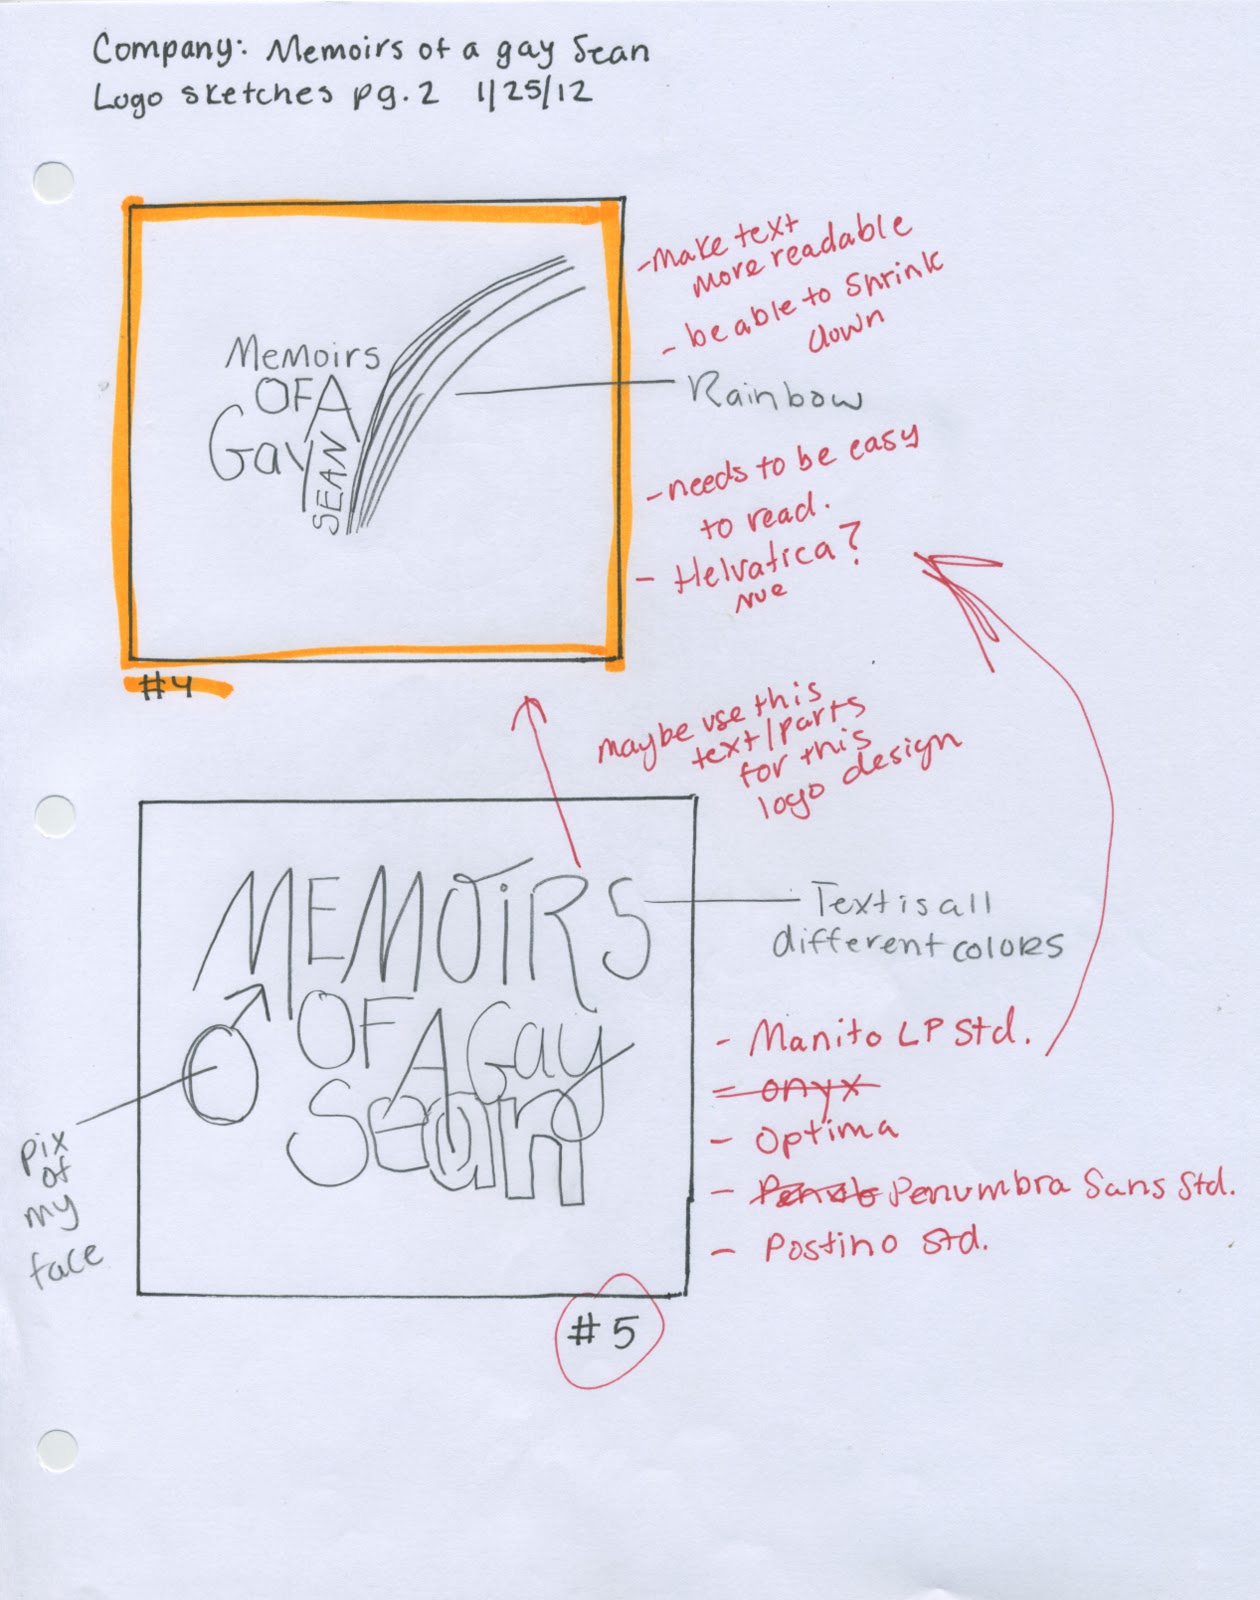 Company: Memoirs of a gay Sean
Logo sketches pg. 2 1/25/12
Memoirs
OF A
Gay
SEAN
- make text
more readable
- be able to shrink
down
Rainbow
- needs to be easy
to read.
- Helvatica?
Nue
#4
maybe use this
text/parts
for this
logo design
MEMOiRS
OF A Gay
Sean
Text is all
different colors
pix
of
my
face
- Manito LP Std.
- onyx
- Optima
- Penumbra Sans Std.
- Postino Std.
#5